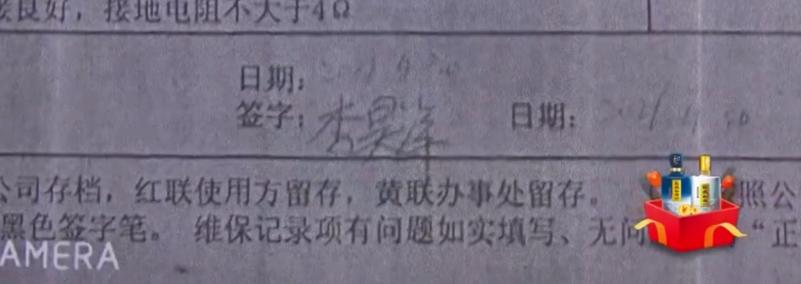 接良好，接地电阻不大于4Ω
日期：
签字： 日期：
公司存档，红联使用方留存，黄联办事处留存。 照公
黑色签字笔。 维保记录项有问题如实填写、无问 “正
AMERA